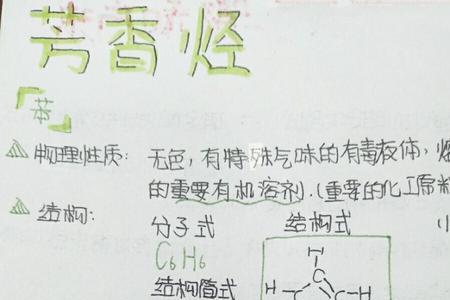 芳香烃
「苯」
物理性质：无色，有特殊气味的有毒液体，
的重要有机溶剂.(重要的化工原料
结构：分子式 结构式
C6H6 H
结构简式 H-C C-H